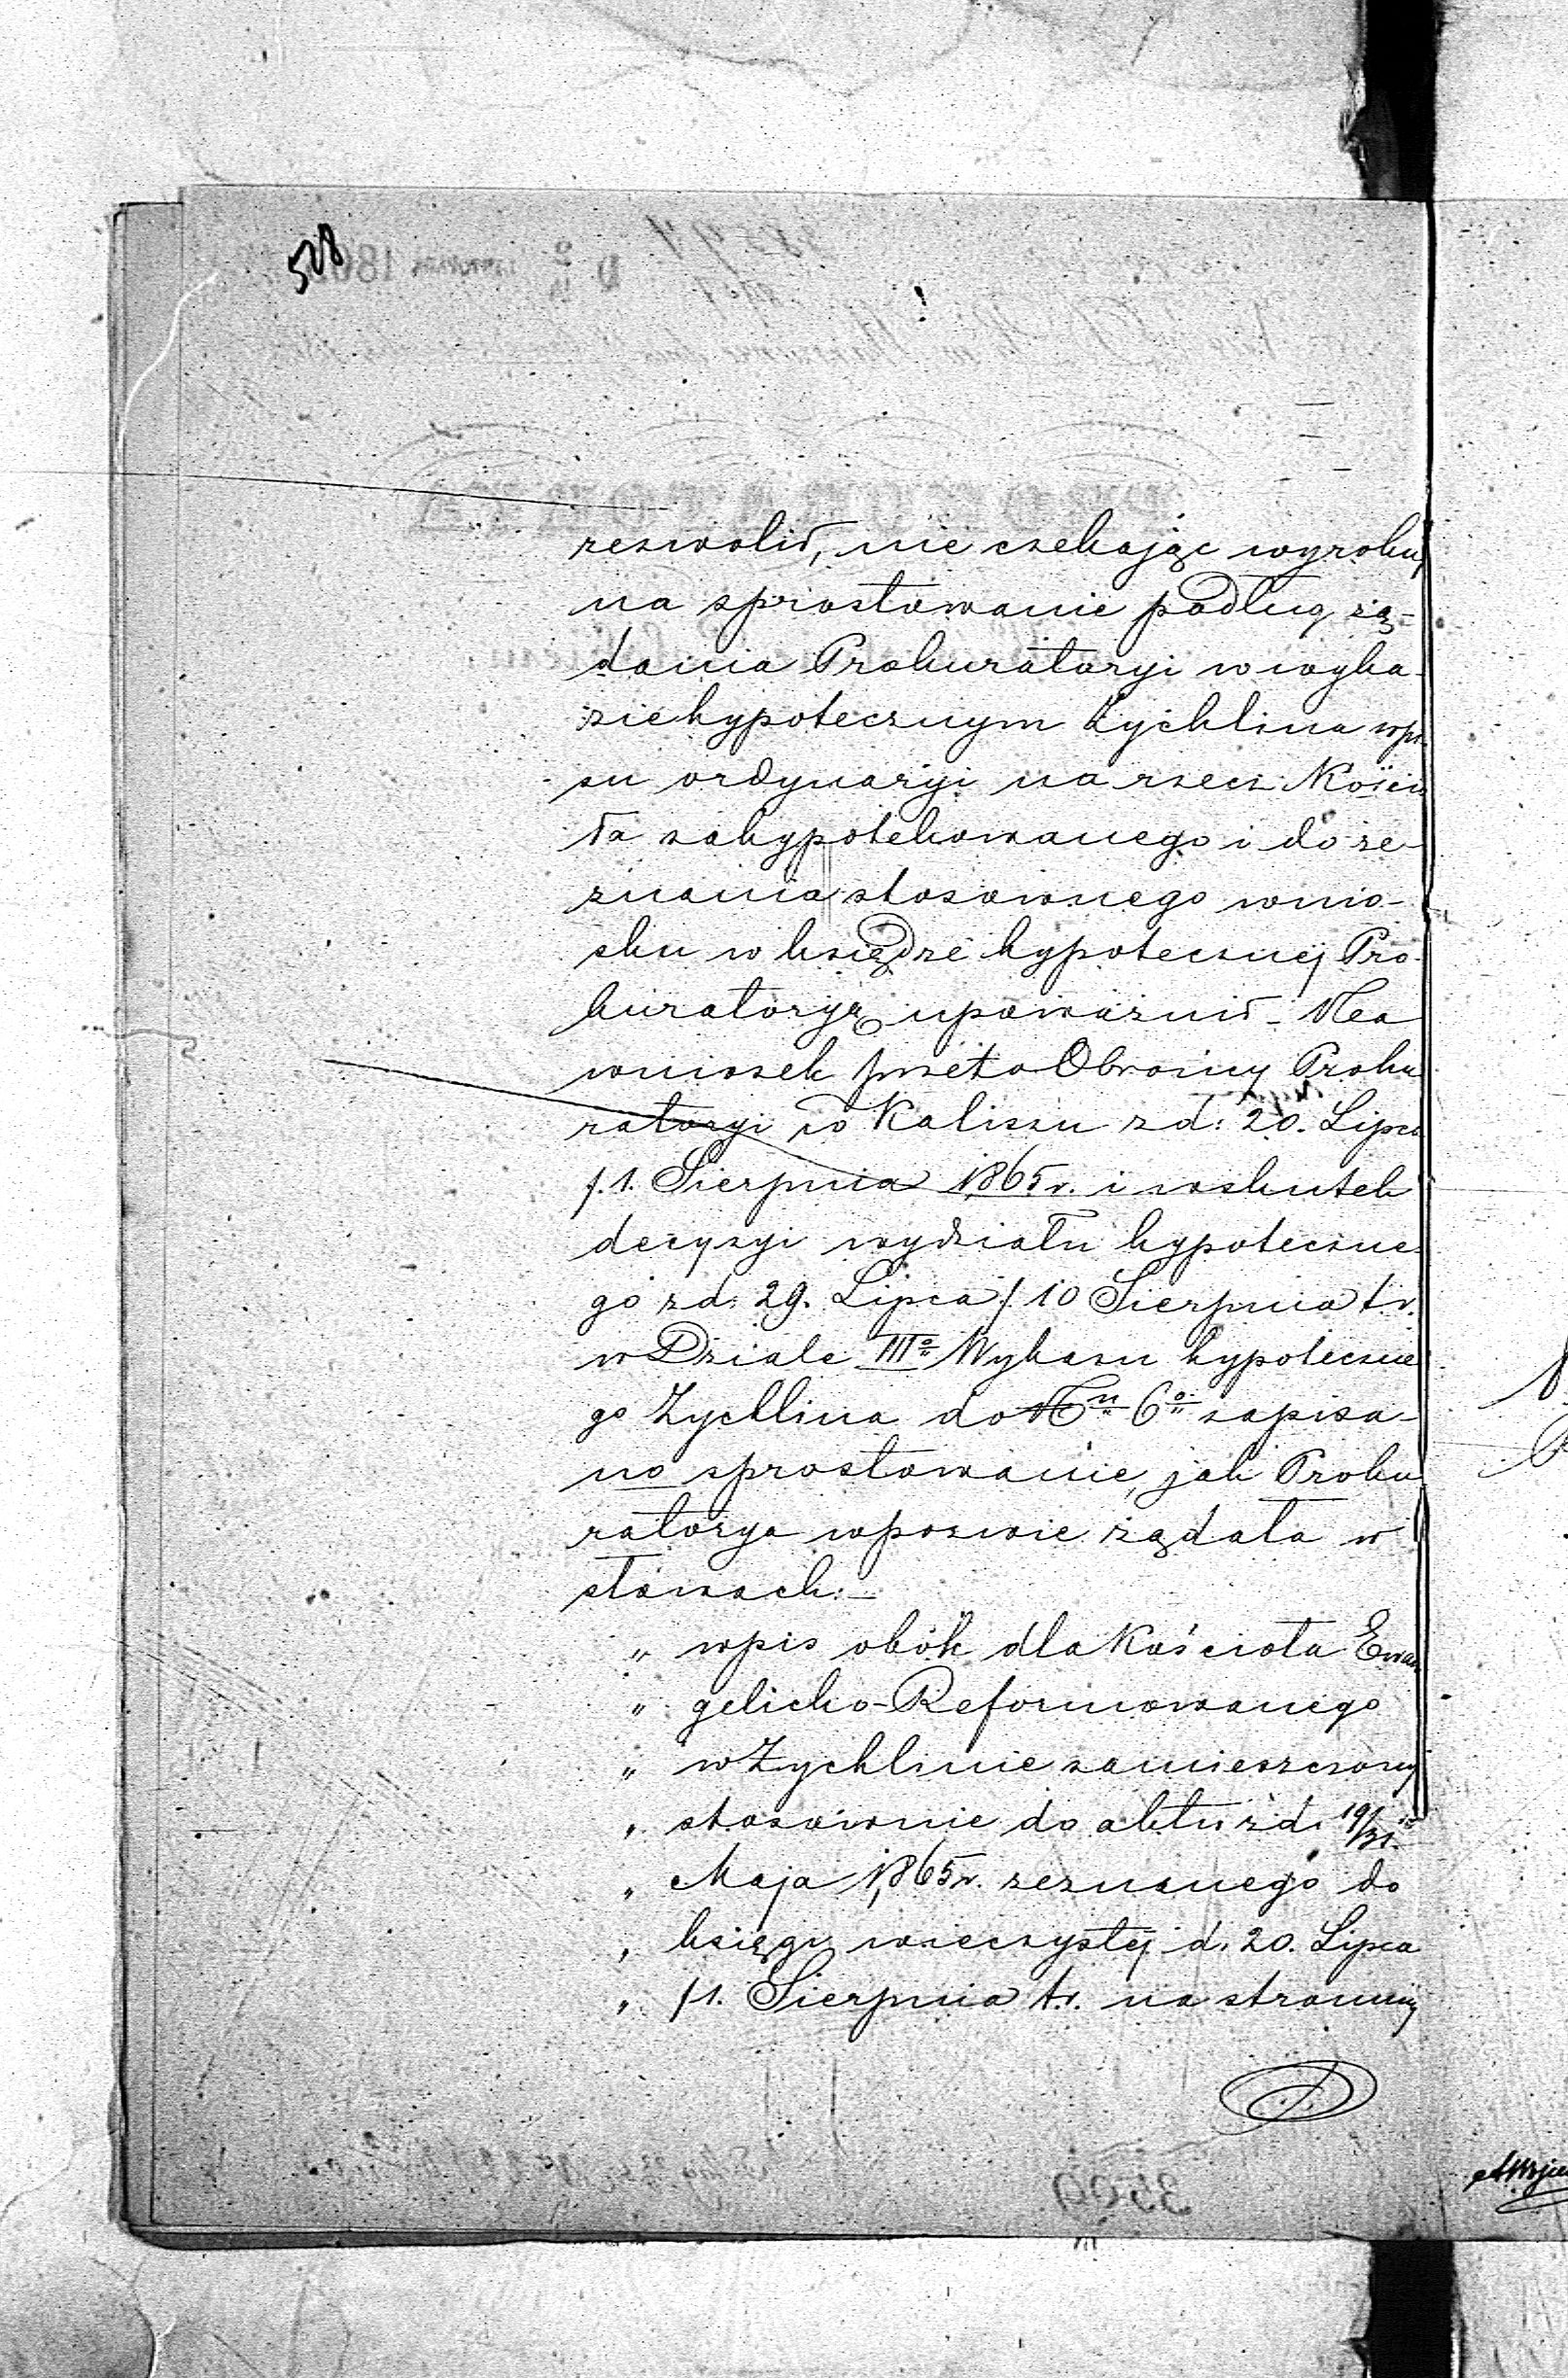 508
zezwolił, nie czekając wyroku,
na sprostowanie podług żą-
dania Prokuratoryi w wyka-
zie hypotecznym Żychlina wpi-
su ordynaryi na rzecz Kościo-
ła zahypotekowanego i do ze-
znania stosownego wnio-
sku w księdze hypotecznej Pro-
kuratoryą upoważnił – Na
wniosek przeto Obrońcy Proku
ratoryi w Kaliszu z d: 20. Lipca
/.1. Sierpnia 1865 r. i wskutek
decyzyi wydziału hypoteczne-
go z d. 29. Lipca / 10 Sierpnia t.r.
w Dziale III° Wykazu hypoteczne
go Żychlina do Nu 6° zapisa-
no sprostowanie, jak Proku
ratorya w pozwie żądała w
słowach: –
„ wpis obok dla Kościoła Ewan
„ gelicko-Reformowanego
„ w Żychlinie zamieszczony
„ stosownie do aktu z d. 19/31.
„ Maja 1865 r. zeznanego do
„ księgi wieczystej d. 20. Lipca
„ /1. Sierpnia t.r. na stronnicy